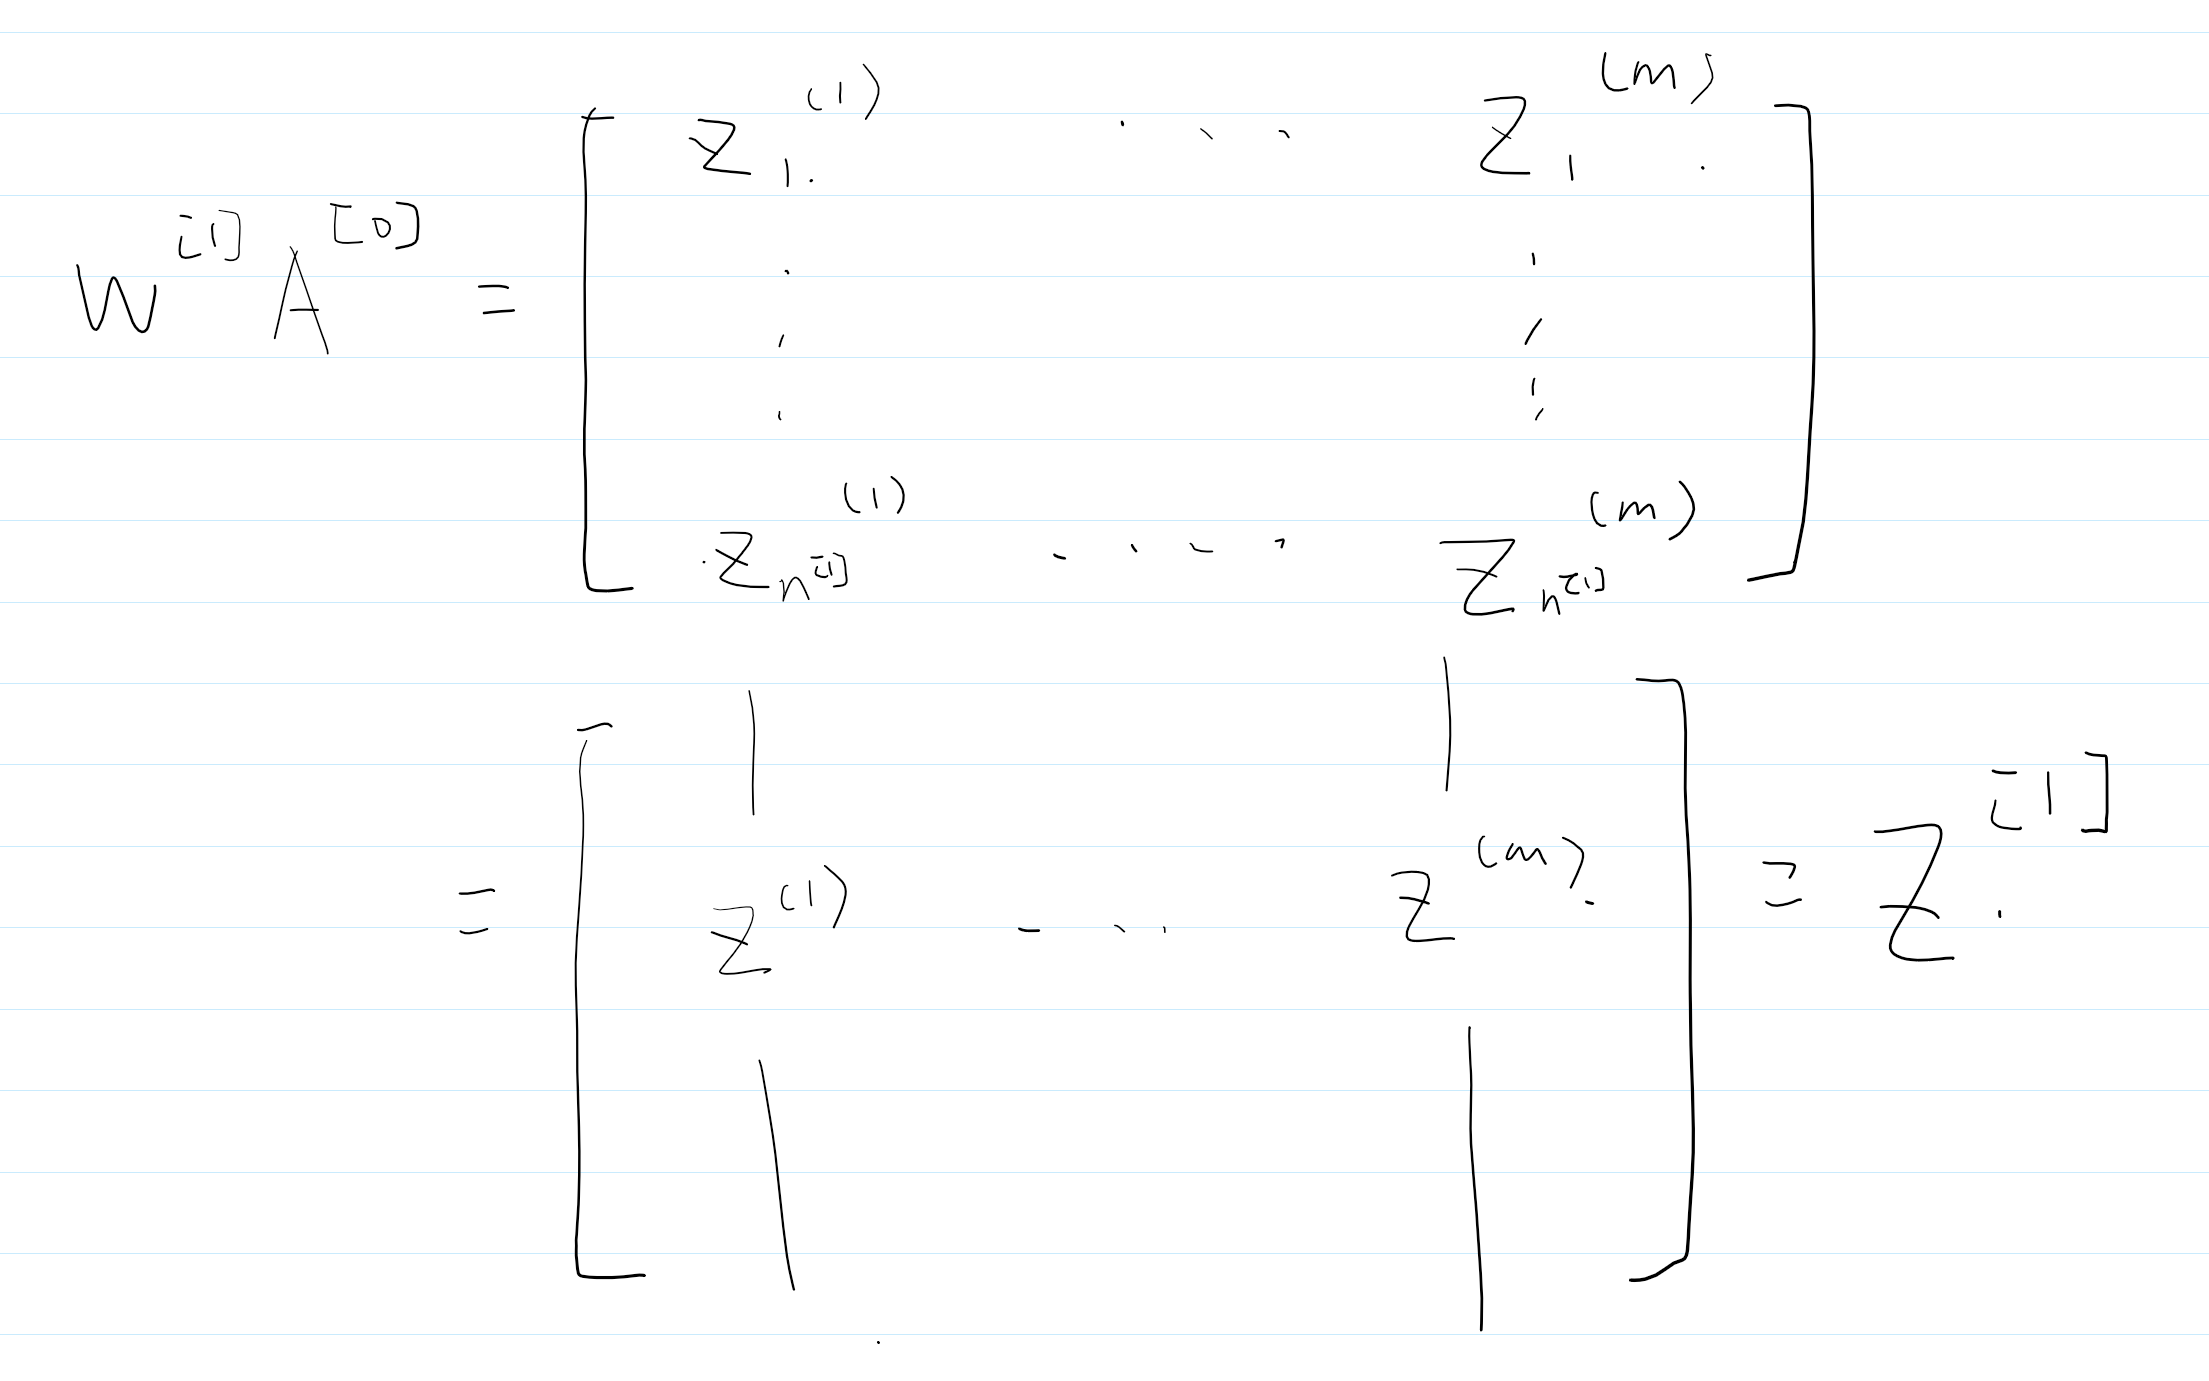 W^{[1]} A^{[0]} = \begin{bmatrix} z_1^{(1)} & \cdots & z_1^{(m)} \\ \vdots & & \vdots \\ z_{n^{[1]}}^{(1)} & \cdots & z_{n^{[1]}}^{(m)} \end{bmatrix}
= \begin{bmatrix} | & & | \\ z^{(1)} & \cdots & z^{(m)} \\ | & & | \end{bmatrix} = Z^{[1]}.